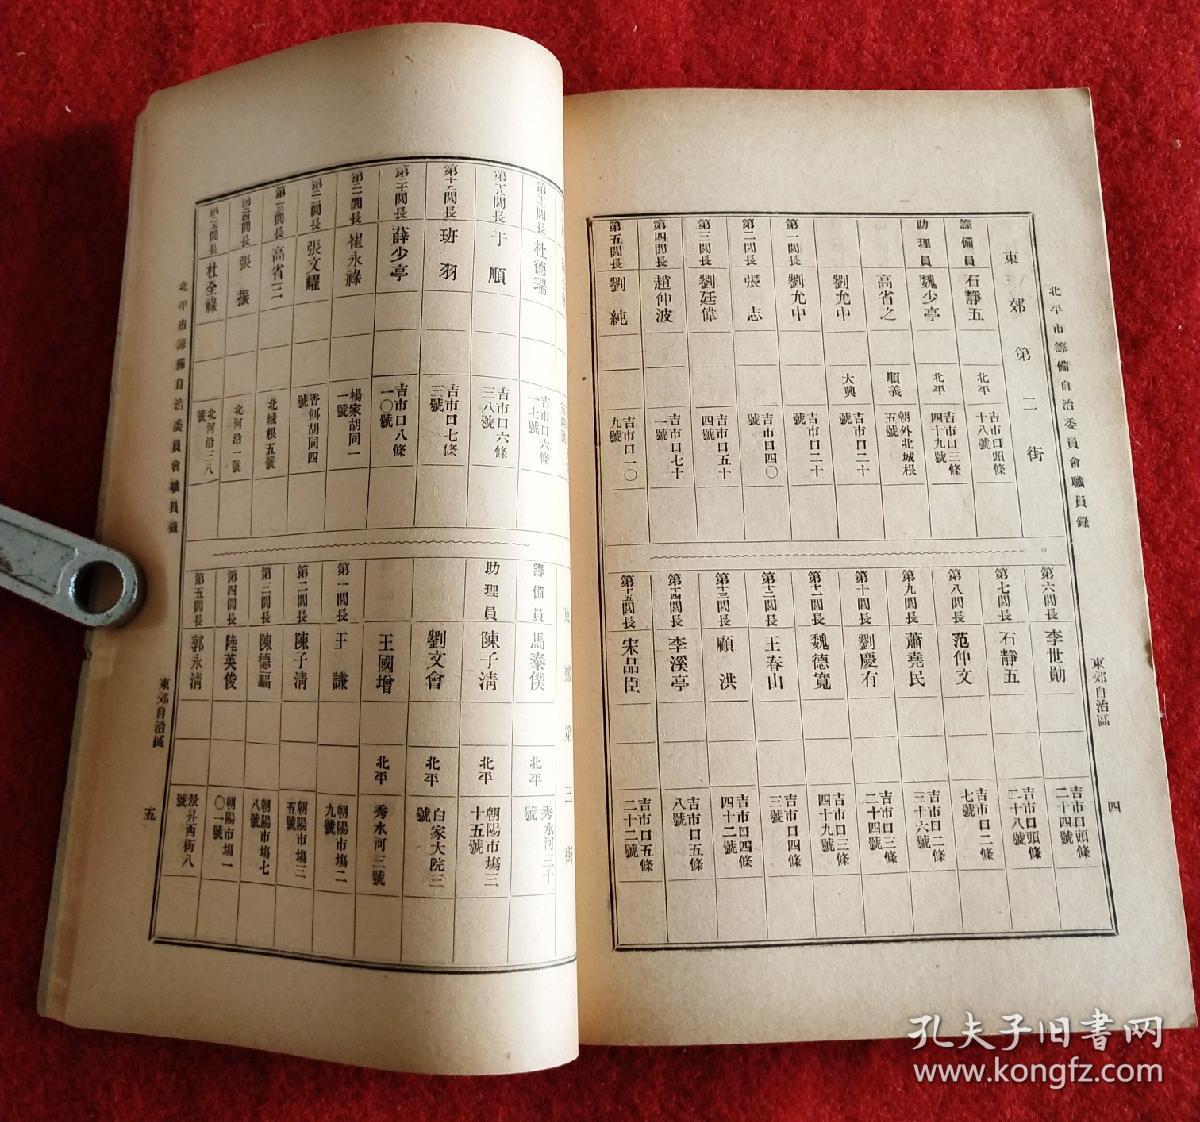 北平市籌備自治委員會職員錄
東郊自治區
四
東郊第二街
籌備員 石靜五 北平 吉市口頭條十八號
助理員 魏少亭 北平 吉市口三條四十九號
高省之 順義 朝外北城根五號
劉允中 大興 吉市口二十號
第一閭長 劉允中 吉市口二十號
第二閭長 張志 吉市口四〇號
第三閭長 劉廷偉 吉市口五十四號
第四閭長 趙仲波 吉市口七十一號
第五閭長 劉純 吉市口一〇九號
第六閭長 李世勛 吉市口頭條二十四號
第七閭長 石靜五 吉市口頭條二十八號
第八閭長 范仲文 吉市口二條七號
第九閭長 蕭堯民 吉市口二條三十六號
第十閭長 劉慶有 吉市口三條二十四號
第十一閭長 魏德寬 吉市口三條四十九號
第十二閭長 王春山 吉市口四條三號
第十三閭長 顧洪 吉市口四條四十二號
第十四閭長 李溪亭 吉市口五條八號
第十五閭長 宋品臣 吉市口五條二十二號
杜德瑞 吉市口六條一七號
于順 吉市口六條三八號
第十九閭長 班羽 吉市口七條三號
第二十閭長 薛少亭 吉市口八條一〇號
崔永祿 楊家胡同一一號
張文耀 香餌胡同四號
高省三 北城根五號
張張 北河沿一號
杜全祿 北河沿三八號
東郊第三街
籌備員 馬秦僕 北平 秀水河三十號
助理員 陳子清 北平 朝陽市場三十五號
劉文會 北平 白家大院三號
王國增 北平 秀水河三號
第一閭長 王謙 朝陽市場二九號
第二閭長 陳子清 朝陽市場三五號
第三閭長 陳德福 朝陽市場七八號
第四閭長 陸英俊 朝陽市場一〇一號
第五閭長 郭永清 景昇西街八號
北平市籌備自治委員會職員錄
東郊自治區
五
孔夫子旧书网
www.kongfz.com